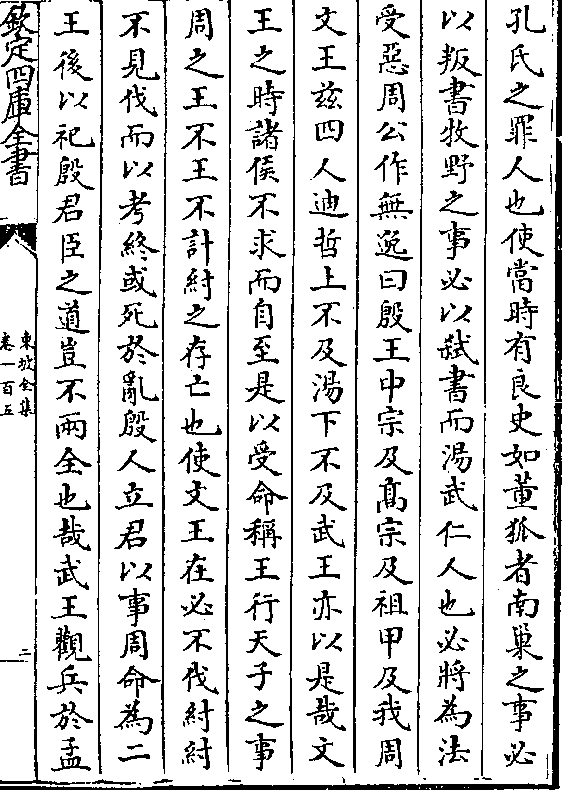 孔氏之罪人也使當時有良史如董狐者南巢之事必
以叛書牧野之事必以弑書而湯武仁人也必將為法
受惡周公作無逸曰殷王中宗及髙宗及祖甲及我周
文王兹四人迪哲上不及湯下不及武王亦以是哉文
王之時諸侯不求而自至是以受命稱王行天子之事
周之王不王不計紂之存亡也使文王在必不伐紂紂
不見伐而以考終或死於亂殷人立君以事周命為二
王後以祀殷君臣之道豈不兩全也哉武王觀兵於孟
欽定四庫全書
東坡全集
卷一百五
二